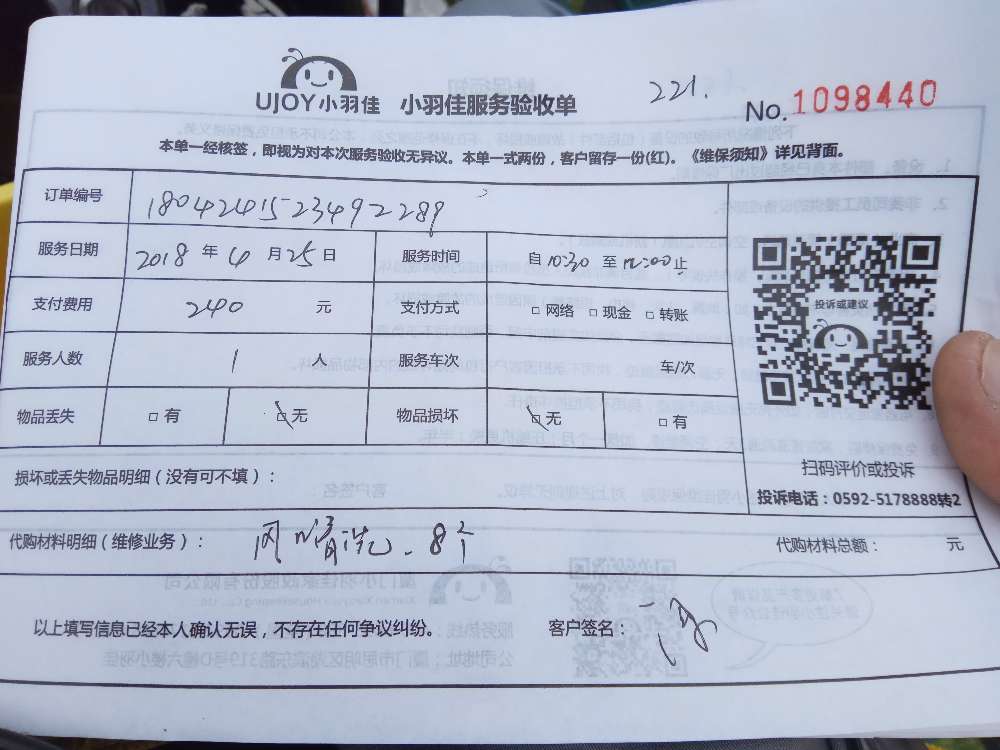 UJOY小羽佳 小羽佳服务验收单
221.
No.1098440
本单一经核签，即视为对本次服务验收无异议。本单一式两份，客户留存一份(红)。《维保须知》详见背面。
订单编号 1804241523492289
服务日期 2018 年 4 月 25 日 服务时间 自 10:30 至 12:00 止
支付费用 240 元 支付方式 □ 网络 □ 现金 □ 转账
服务人数 1 人 服务车次 车/次
物品丢失 □ 有 □ 无 物品损坏 □ 无 □ 有
投诉或建议
扫码评价或投诉
投诉电话：0592-5178888转2
损坏或丢失物品明细（没有可不填）：
代购材料明细（维修业务）： 清洗 8个
代购材料总额： 元
以上填写信息已经本人确认无误，不存在任何争议纠纷。 客户签名：